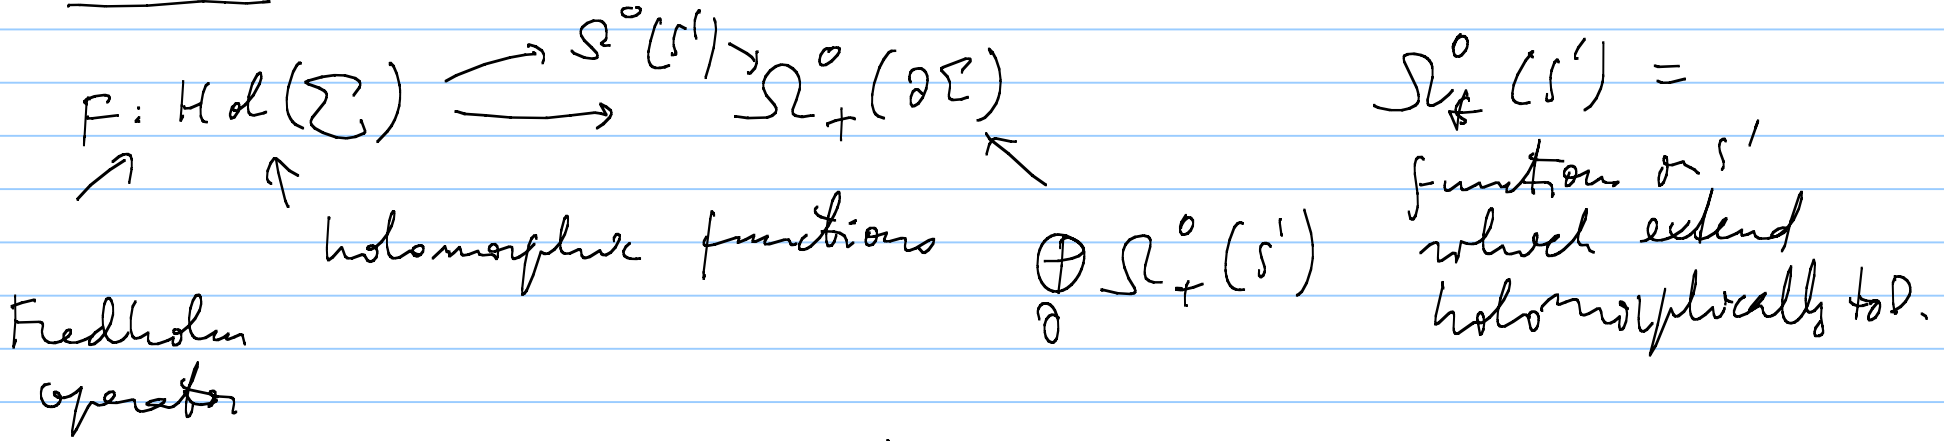 Ω⁰(S¹)
F: Hol(Σ) → Ω⁰₊(∂Σ)
Ω⁰₊(S¹) =
functions on S¹
which extend
holomorphically to D.
holomorphic functions
⊕ Ω⁰₊(S¹)
∂
Fredholm
operator